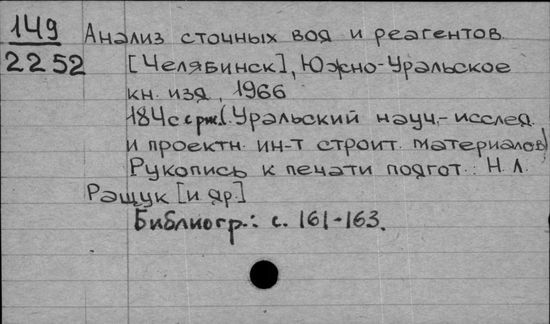 149 Анализ сточных вод и реагентов
2252 [Челябинск], Южно-Уральское
кн. изд, 1966
184с с рис. (Уральский науч.-исслед
и проектн. ин-т строит. материалов)
Рукопись к печати подгот.: Н.Л.
Ращук [и др.]
Библиогр.: с. 161-163.